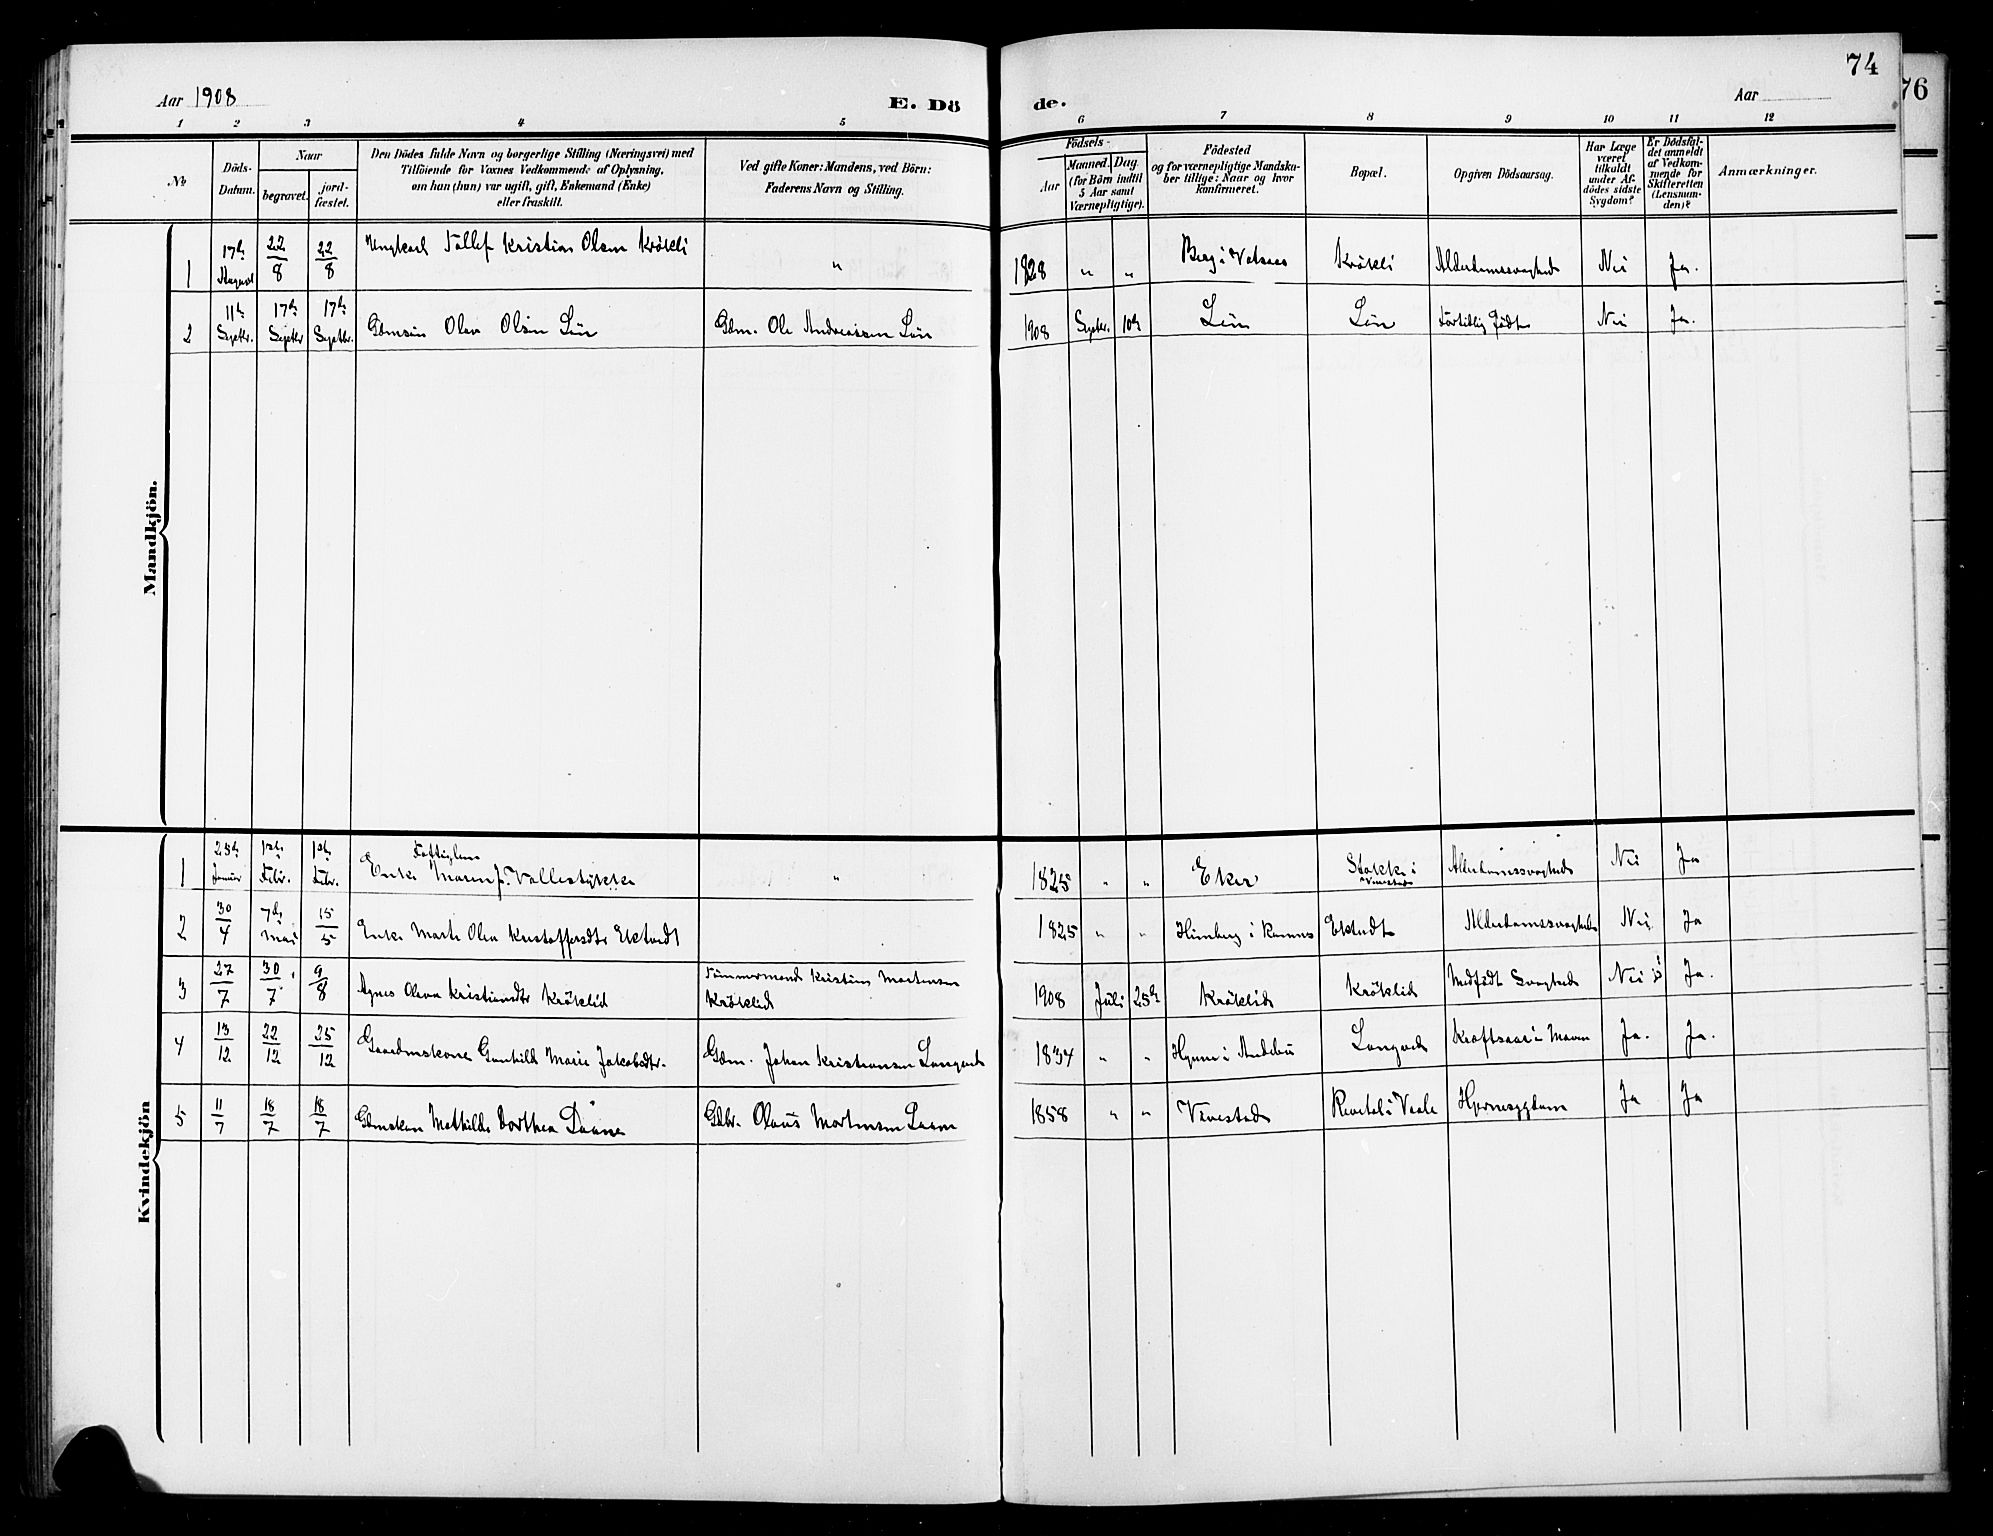 74
76
Aar 1908
E. Dö
de.
Aar
1 2 3 4 5 6 7 8 9 10 11 12
No
Döds-
Datum.
Naar
begravet.
jord-
fæstet.
Den Dödes fulde Navn og borgerlige Stilling (Næringsvei) med
Tilföiende for Voxnes Vedkommende af Oplysning,
om han (hun) var ugift, gift, Enkemand (Enke)
eller fraskilt.
Ved gifte Koner: Mandens, ved Börn:
Faderens Navn og Stilling.
Födsels-
Aar
Maaned.
Dag.
(for Börn indtil
5 Aar samt
Værnepligtige).
Födested
og for værnepligtige Mandska-
ber tillige: Naar og hvor
konfirmeret.
Bopæl.
Opgiven Dödsaarsag.
Har Læge
været
tilkaldt
under Af-
dödes sidste
Sygdom?
Er Dödsfal-
det anmeldt
af Vedkom-
mende for
Skifteretten
(Lensman-
den)?
Anmærkninger.
Mandkjön.
1 17de August 22/8 22/8 Ungkarl Tollef Kristian Olsen Krökli " 1828 " " Berg i Krökli Alderdomssvaghed Nei Ja.
2 11te Septbr. 17de Septbr 17de Septbr. Gdmsön Olav Olsen Gdm. Ole Andreassen 1908 Septbr. 10de For tidlig Födt Nei Ja.
Kvindekjön
1 25de Januar 1ste Febr. 1ste Febr. Fattiglem
Enke Maren " 1825 " " Eker Stokke i Alderdomssvaghed Nei Ja
2 30/4 7de Mai 15/5 Enke Marte Olea Kristoffersdtr 1825 " " Himberg i Ramnes Alderdomssvaghed Nei. Ja
3 27/7 30/7 9/8 Agnes Olava Kristiansdtr Kröklid Tömmermand Kristian Mortensen
Kröklid 1908 Juli 25de Kröklid Kröklid Medfödt Svaghed Nei Ja.
4 13/12 22/12 25/12 Gaardmskone Gunhild Marie Jakobsdtr. Gdm. Johan Kristiansen 1834 " " i Andebu Kræftsaar i Maven Ja. Ja.
5 11/7 18/7 18/7 Gdmskone Mathilde Dorthea Gdbr. Olaus Mortensen 1858 " " Vivestad Revetal i Vaale Hjernesygdom Ja Ja